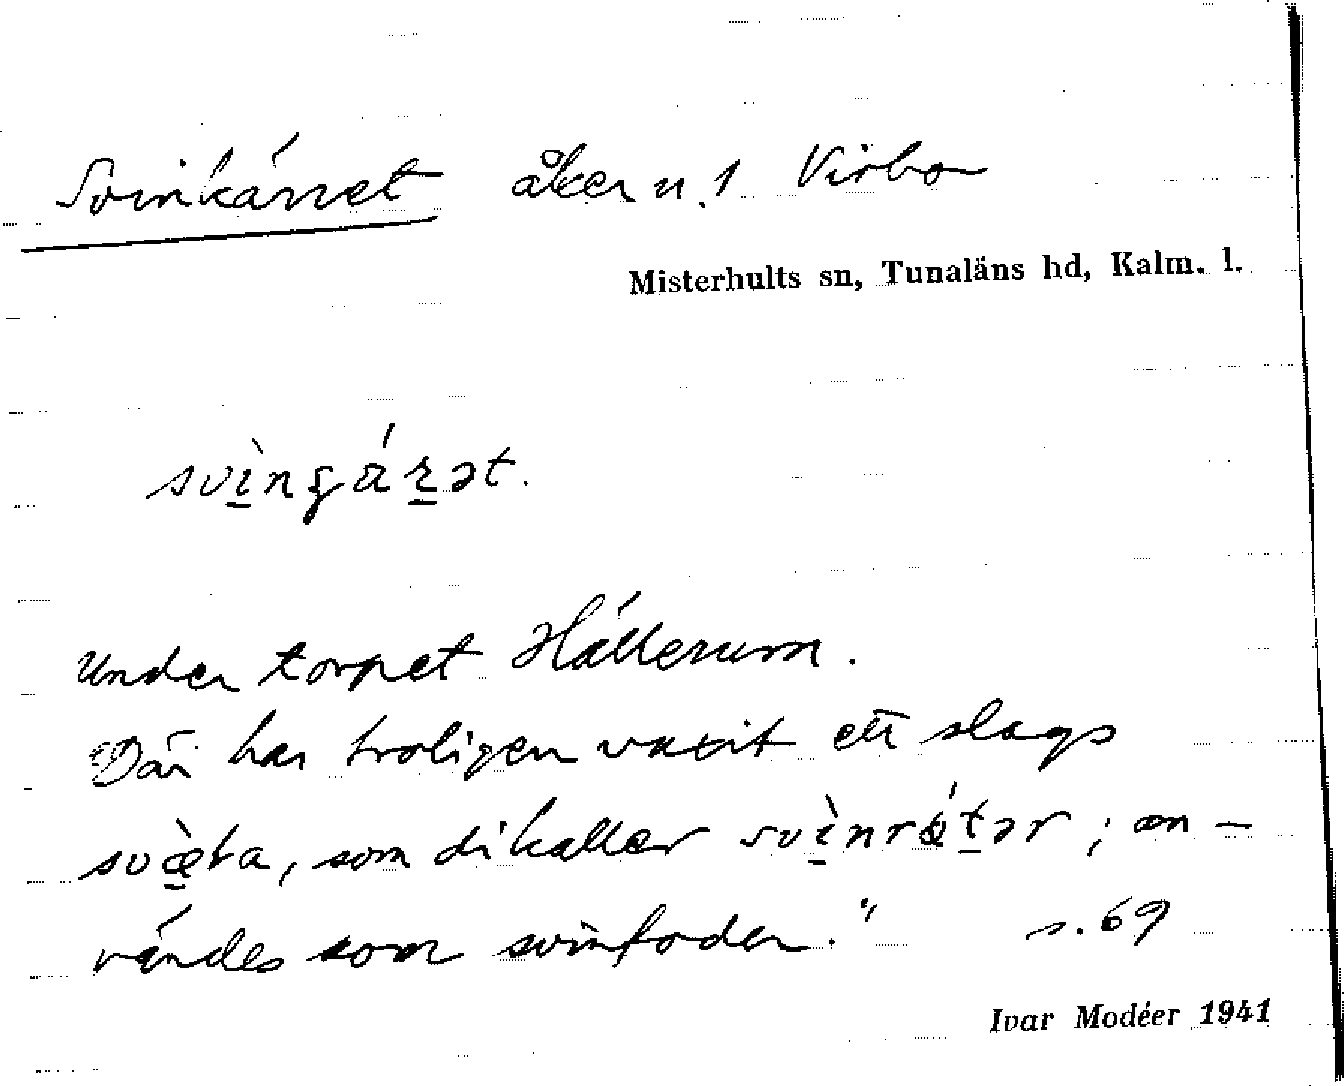 Svinkärret åker u. 1 Virbo
Misterhults sn, Tunaläns hd, Kalm. l.
svìngárət.
Under torpet Hällerum.
"Där har troligen vuxit ett slags
svæ̀ta, som di kallar svìnrǽtər; an-
vändes som svinfoder." s. 69
Ivar Modéer 1941